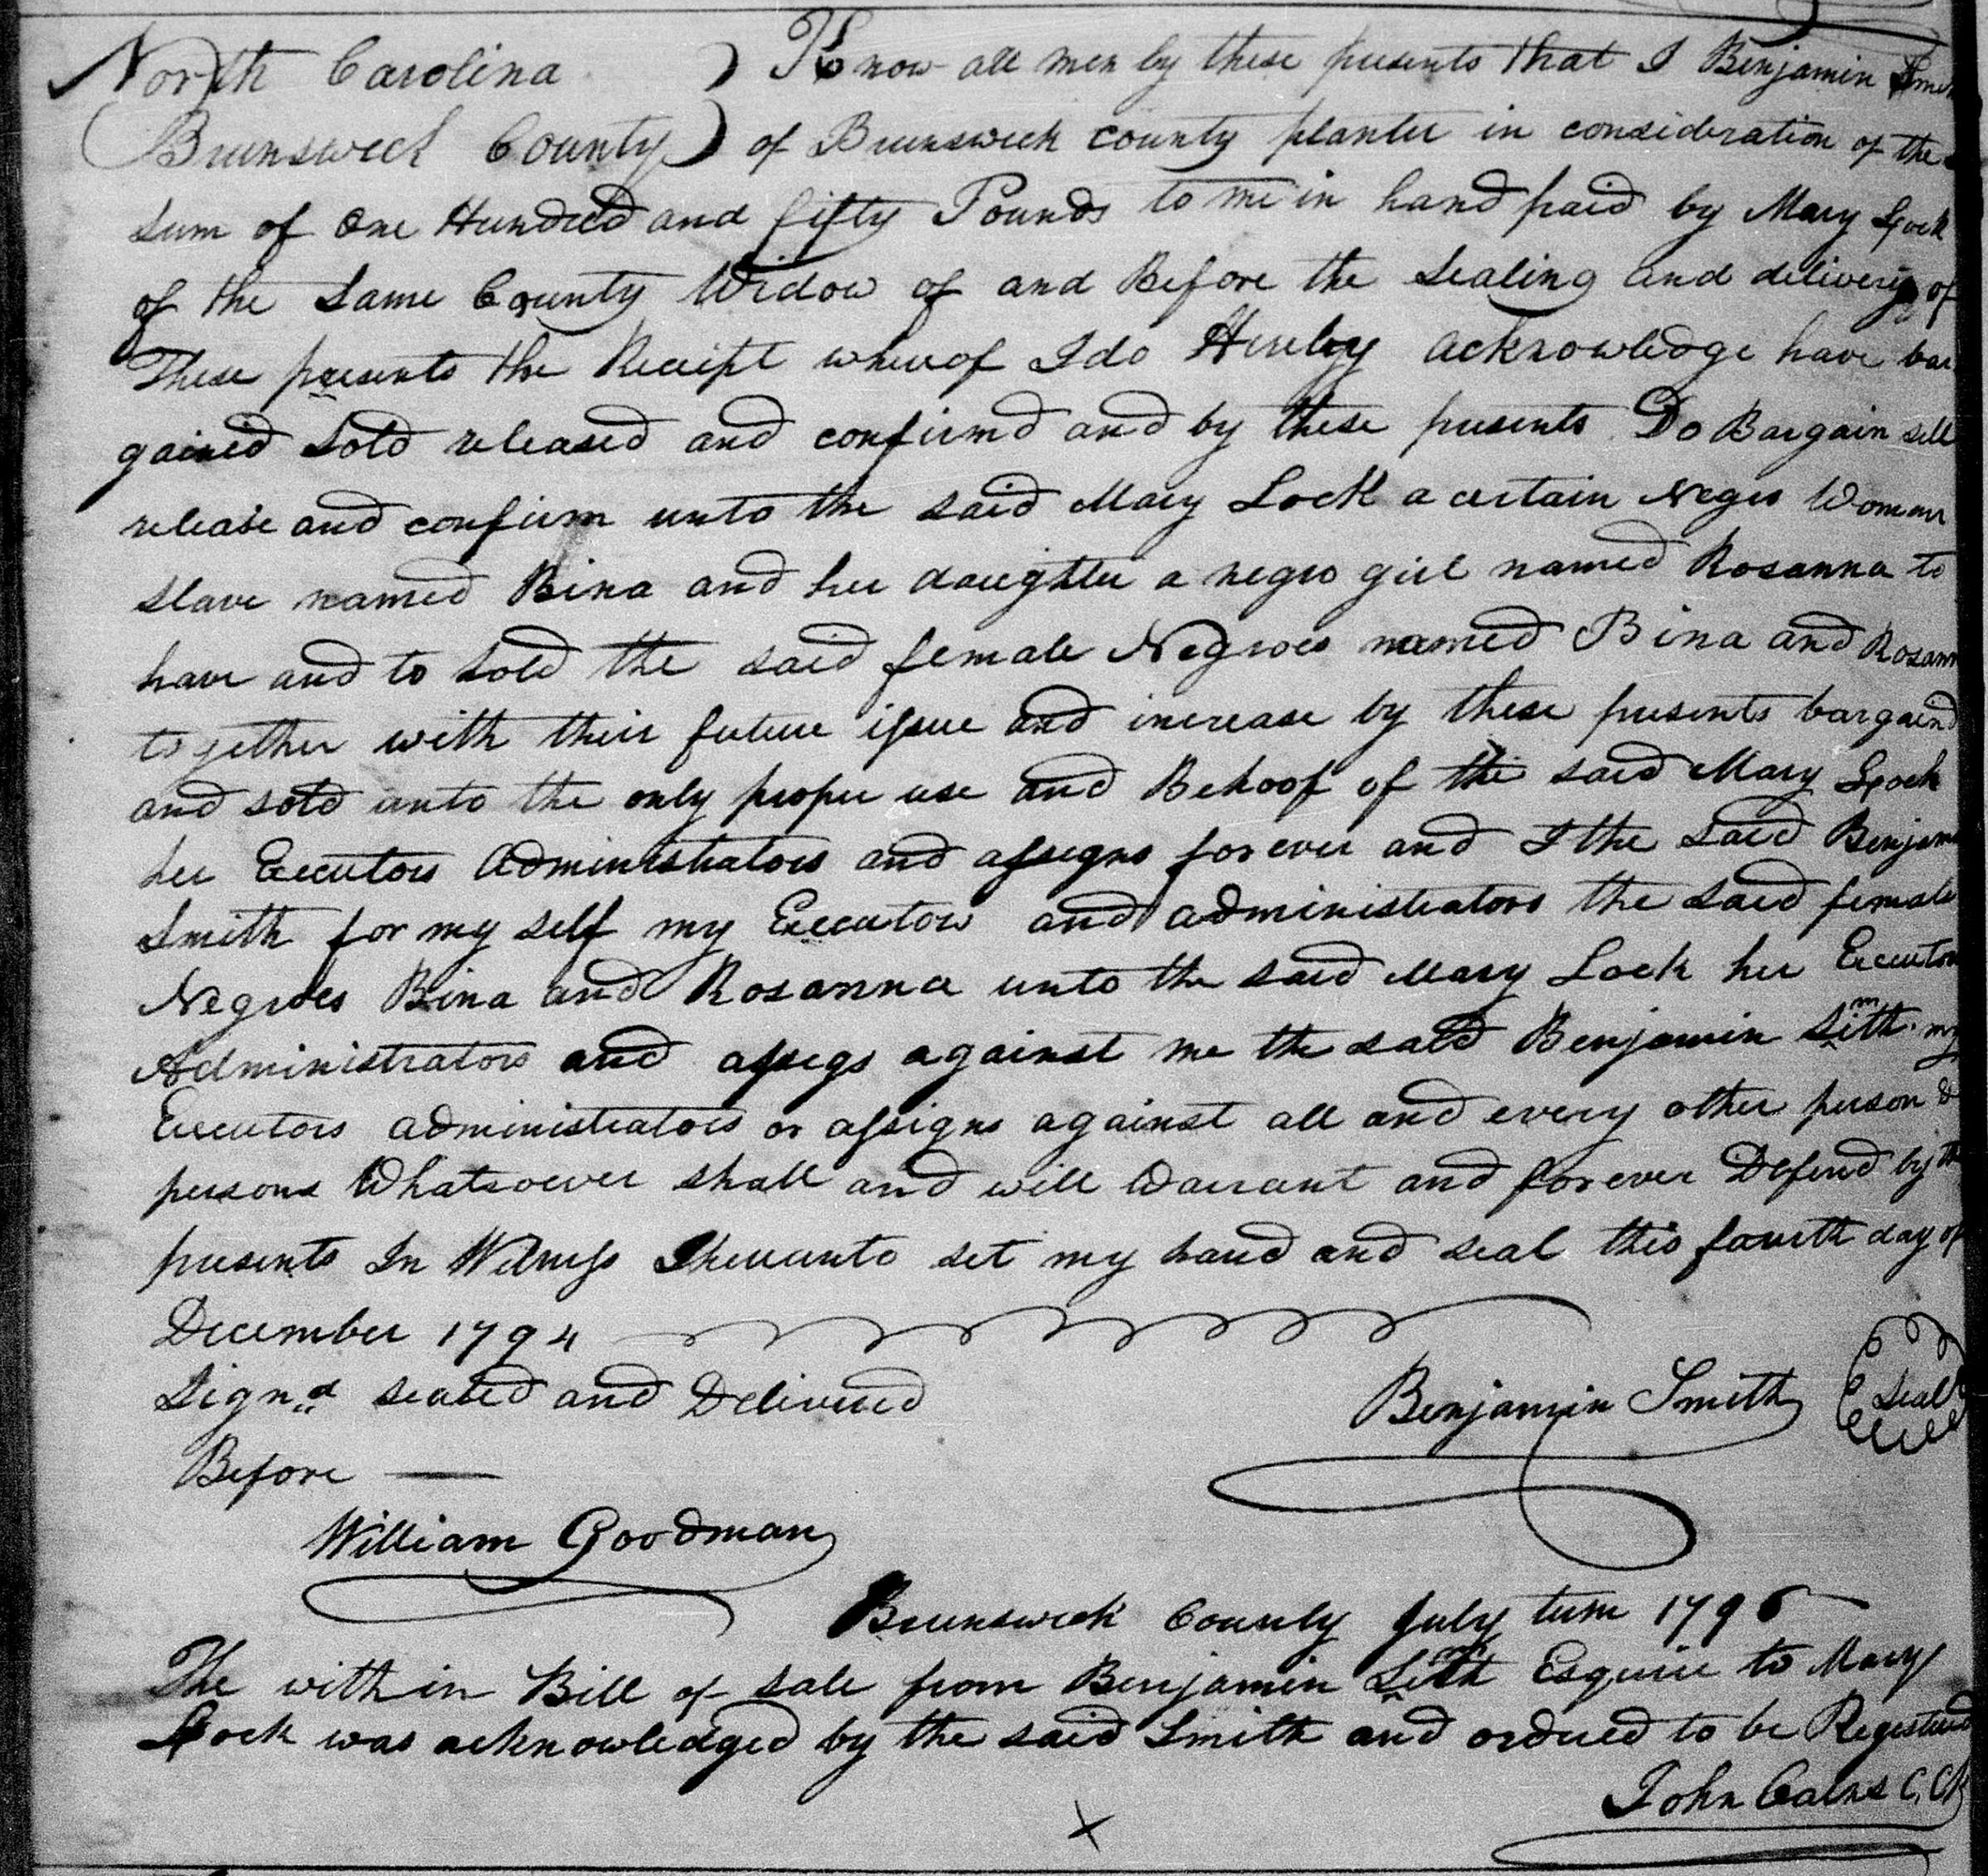 North Carolina ) Know all men by these presents that I Benjamin
Brunswick County ) of Brunswick County planter in consideration of the
Sum of one Hundred and fifty Pounds to me in hand paid by Mary Lock
of the Same County Widow of and Before the Sealing and delivery of
These presents the Receipt whereof I do Hereby acknowledge have bar
gained Sold released and confirmd and by these presents Do Bargain sell
release and confirm unto the said Mary Lock a certain Negro Woman
slave named Bina and her daughter a negro girl named Rosanna to
have and to hold the said female Negroes named Bina and Rosann
together with their future issue and increase by these presents bargaind
and sold unto the only proper use and Behoof of the said Mary Lock
her Executors Administrators and assigns for ever and I the Said Benjam
Smith for my self my Executors and administrators the said female
Negroes Bina and Rosanna unto the said Mary Lock her Executors
Administrators and assigs against me the said Benjamin Smith my
Executors administrators or assigns against all and every other person &
persons Whatsoever shall and will Warrant and for ever Defend by th
presents In Witness Thereunto set my hand and seal this fourth day of
December 1794
Signd sealed and Delivered
Benjamin Smith Seal
Before —
William Goodman
Brunswick County July term 1796
The with in Bill of sale from Benjamin Smith Esquire to Mary
Lock was acknowledged by the said Smith and ordered to be Registered
John Calns C, Ck
X